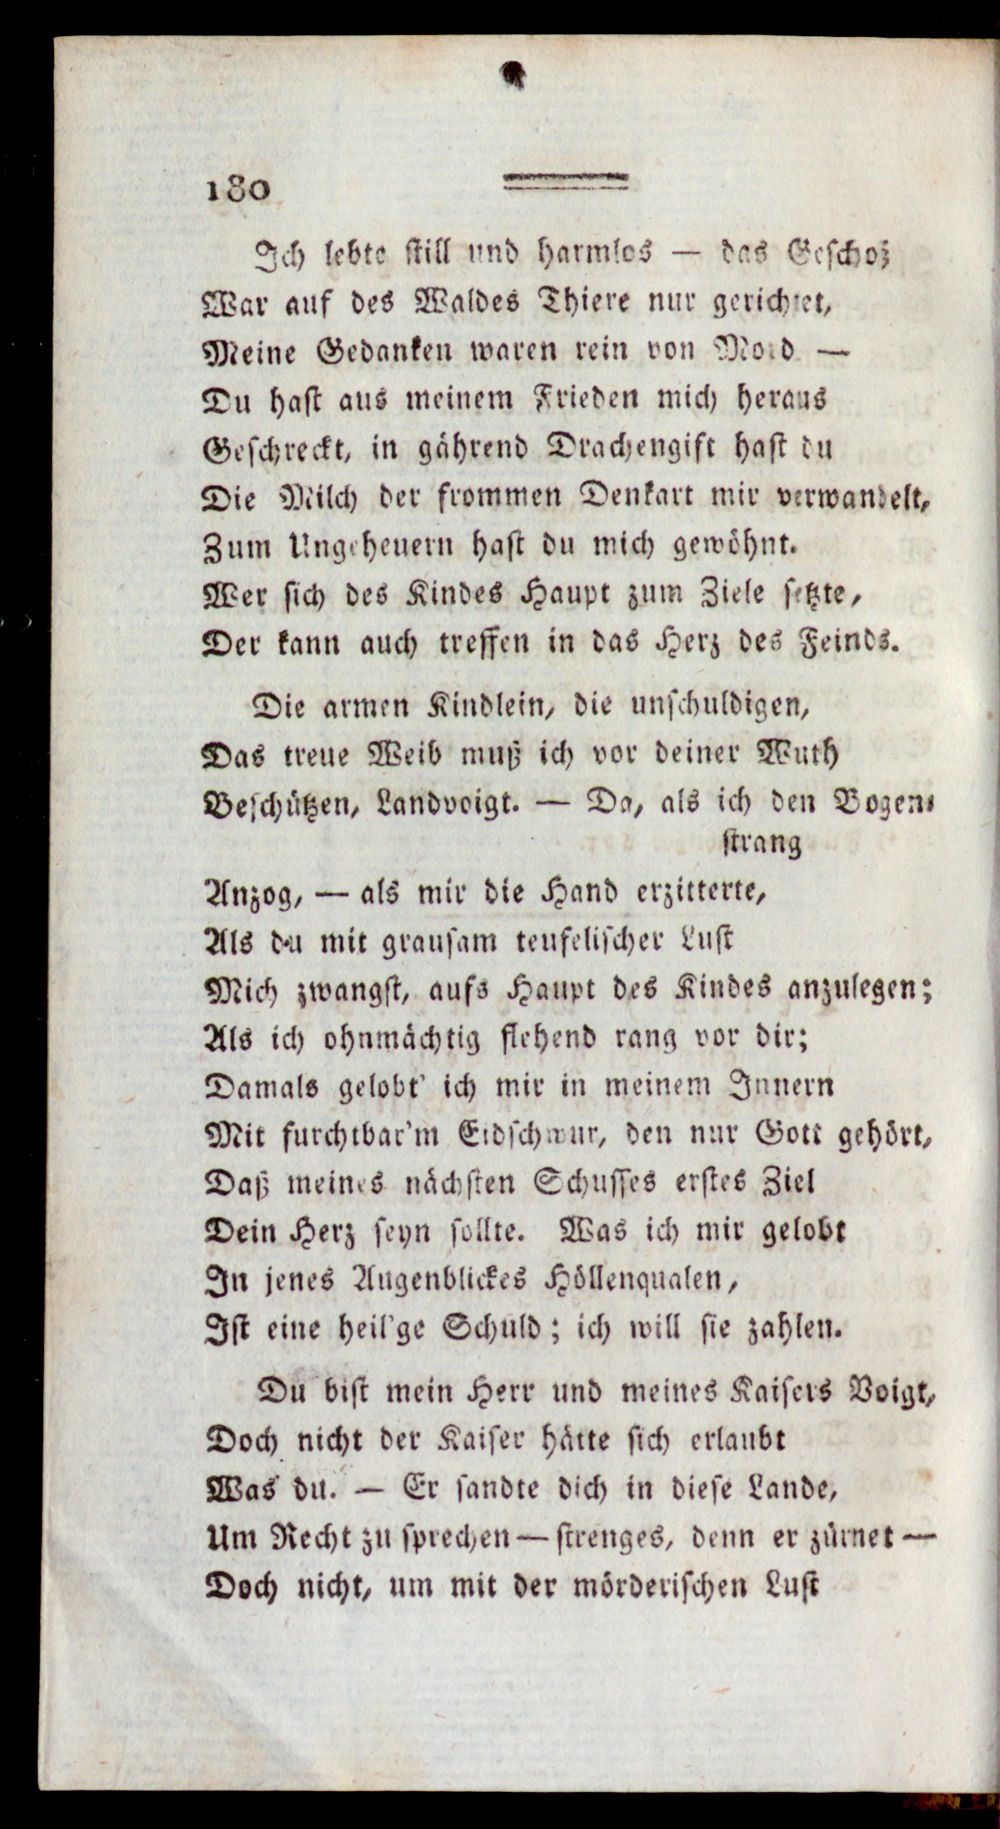 180
Ich lebte still und harmlos — das Geschoß
War auf des Waldes Thiere nur gerichtet,
Meine Gedanken waren rein von Mord —
Du hast aus meinem Frieden mich heraus
Geschreckt, in gährend Drachengift hast du
Die Milch der frommen Denkart mir verwandelt,
Zum Ungeheuern hast du mich gewöhnt.
Wer sich des Kindes Haupt zum Ziele setzte,
Der kann auch treffen in das Herz des Feinds.
Die armen Kindlein, die unschuldigen,
Das treue Weib muß ich vor deiner Wuth
Beschützen, Landvoigt. — Da, als ich den Bogen-
strang
Anzog, — als mir die Hand erzitterte,
Als du mit grausam teufelischer Lust
Mich zwangst, aufs Haupt des Kindes anzulegen;
Als ich ohnmächtig flehend rang vor dir;
Damals gelobt' ich mir in meinem Innern
Mit furchtbar'm Eidschwur, den nur Gott gehört,
Daß meines nächsten Schusses erstes Ziel
Dein Herz seyn sollte. Was ich mir gelobt
In jenes Augenblickes Höllenqualen,
Ist eine heil'ge Schuld; ich will sie zahlen.
Du bist mein Herr und meines Kaisers Voigt,
Doch nicht der Kaiser hätte sich erlaubt
Was du. — Er sandte dich in diese Lande,
Um Recht zu sprechen — strenges, denn er zürnet —
Doch nicht, um mit der mörderischen Lust